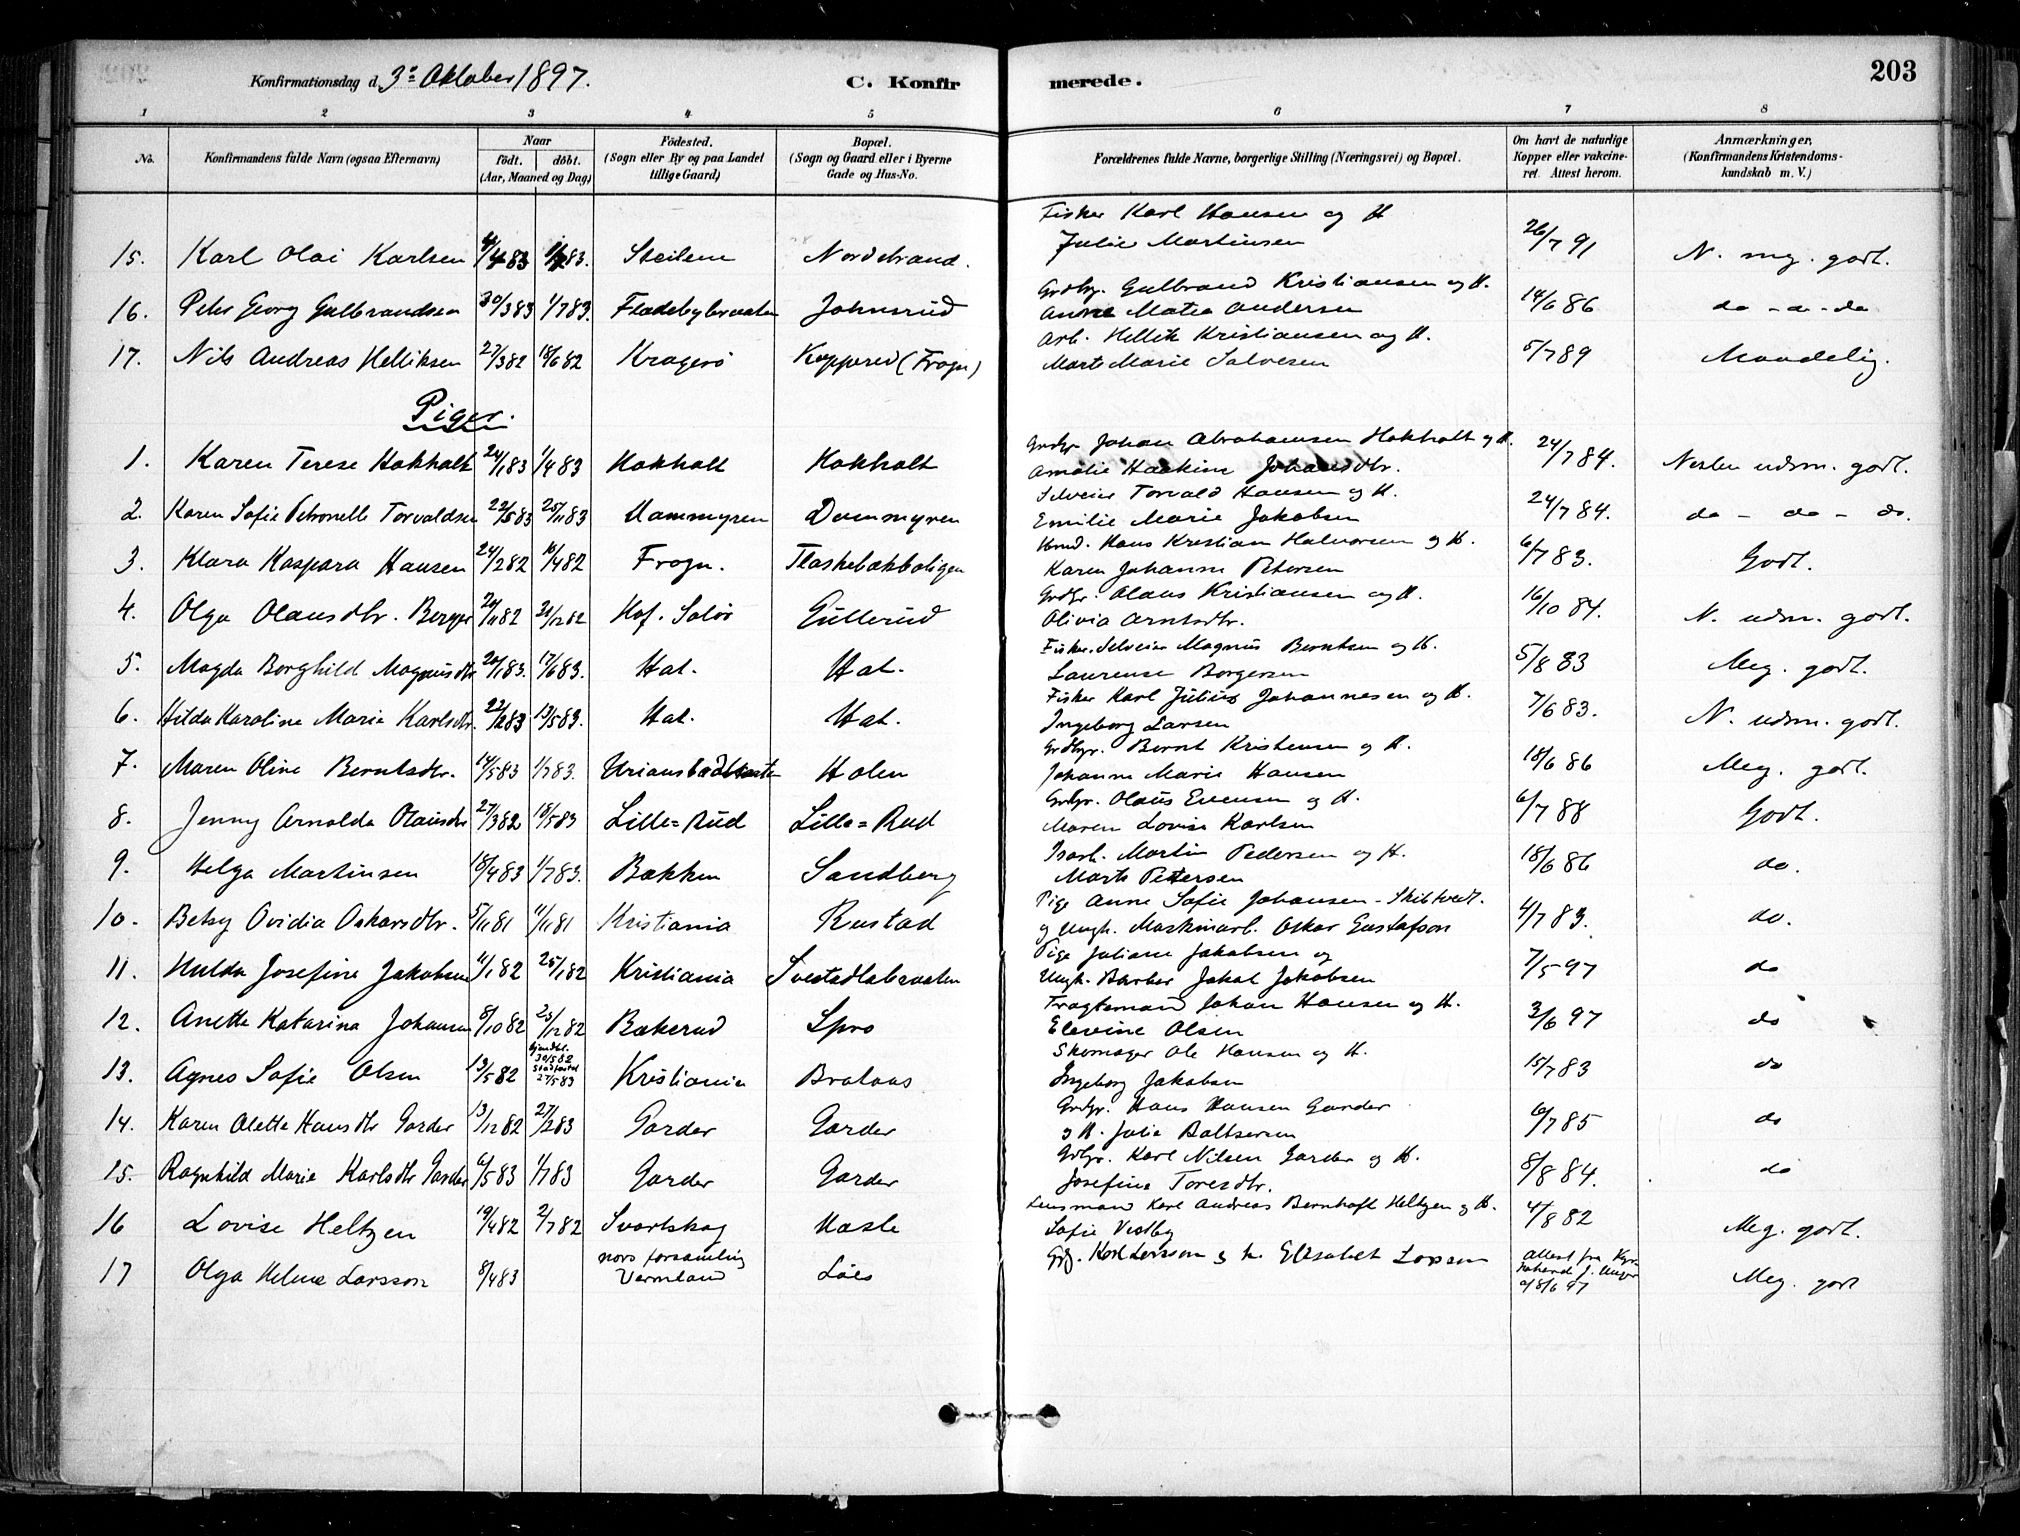 203
Konfirmationsdag d. 3. Oktober 1897. C. Konfirmerede.
1 2 3 4 5 6 7 8
No. Konfirmandens fulde Navn (ogsaa Efternavn) Naar født. døbt. (Aar, Maaned og Dag) Födested. (Sogn eller By og paa Landet tillige Gaard) Bopæl. (Sogn og Gaard eller i Byerne Gade og Hus-No. Forældrenes fulde Navne, borgerlige Stilling (Næringsvei) og Bopæl. Om havt de naturlige Kopper eller vakcineret. Attest herom. Anmærkninger, (Konfirmandens Kristendomskundskab m. V.)
15. Karl Olai Karlsen 4/4 83 1/7 83. Steilene Nordstrand. Fisker Karl Hansen og H Julie Martinsen 26/7 91 N. mg. godt.
16. Peter Georg Gulbrandsen 30/3 83 1/7 83. Fladebybraaten Johnsrud Grdbr. Gulbrand Kristiansen og H. Anne Matea Andersen 14/6 86 do - do - do
17. Nils Andreas Helliksen 27/3 82 18/6 82 Kragerö Kopperud (Frogn) Arb. Hellik Kristiansen og H. Marte Marie Salvesen 5/7 89 Maadelig.
Piger.
1. Karen Terese Hokholt 24/1 83 1/4 83 Hokholt Hokholt Grdbr. Johan Abrahamsen Hokholt og H. Amalie Haakine Johansdtr. 24/7 84. Neslen udm. godt.
2. Karen Sofie Petronelle Torvaldsen 22/5 83 25/11 83 Dammyren Dammyren Selveier Torvald Hansen og H. Emilie Marie Jakobsen 24/7 84. do - do - do.
3. Klara Kaspara Hansen 24/2 82 16/4 82 Frogn. Flaskebækboligen Hmd. Hans Kristian Halvorsen og H. Karen Johanne Petersen 6/7 83. Godt.
4. Olga Olausdtr. Berger 24/11 82 31/12 82 Hof. Solör Gullerud Grdbr. Olaus Kristiansen og H. Olivia Arntsdtr. 16/10 84. N. udm. godt.
5. Magda Borghild Magnusdtr 20/1 83. 17/6 83. Hal. Hal. Fisker. Selveier Magnus Berntsen og H. Laurense Borgersen 5/8 83 Meg. godt.
6. Hilda Karoline Marie Karlsdtr. 22/2 83 13/5 83. Hal. Hal. Fisker Karl Julius Johannesen og H. Ingeborg Larsen 7/6 83. N. udm. godt.
7. Maren Oline Berntsdtr. 14/5 83 1/7 83. Holen Grdbr. Bernt Kristensen og H. Johanne Marie Hansen 18/6 86 Meg. godt.
8. Jenny Arnolda Olausdtr 27/3 82 18/5 83 Lille=Rud Lille=Rud Grdbr. Olaus Evensen og H. Maren Lovise Karlsen 6/7 88 Godt.
9. Helga Martinsen 18/4 83 1/7 83. Bakken Sandberg Martin Pedersen og H. Marte Pettersen 18/6 86 do.
10. Betsy Ovidia Oskarsdtr. 5/11 81 11/11 81 Kristiania Rustad Pige Anne Sofie Johansen - Skibtvedt. og Ungk. Maskinarb. Oskar Gustafson 4/7 83. do.
11. Hulda Josefine Jakobsen 11/1 82 25/1 82 Kristiania Svestadlabraaten Pige Juliane Jakobsen og Ungk. Barber Jakob Jakobsen 7/5 97 do
12. Anette Katarina Johansen 8/10 82 23/12 82 Bækerud Spro Fragtemand Johan Hansen og H. Elevine Olsen 3/6 97 do
13. Agnes Sofie Olsen 13/5 82 hjemdbt. 30/5 82 Stadfæstet 27/5 83 Kristiania Brataas Skomager Ole Hansen og H. Ingeborg Jakobsen 15/7 83 do
14. Karen Alette Hansdtr Garder 13/12 82 27/2 83 Garder Garder Grdbr. Hans Hansen Garder og H. Julie Baltsersen 6/7 85 do
15. Ragnhild Marie Karlsdtr Garder 6/5 83 1/7 83 Garder Garder Grdbr. Karl Nilsen Garder og H. Josefine Toresdtr. 8/8 84. do
16 Lovise Heltzen 19/4 82 2/7 82 Svartskog Lensmand Karl Andreas Bernhoft Heltzen og H. Sofie Vestby 4/8 82 Meg. godt.
17 Olga Helene Larsson 8/4 83 nors forsamling Vermland Löes Karl Larsson & h. Elisabet Larsson Attest fra 8/6 97 Meg. godt